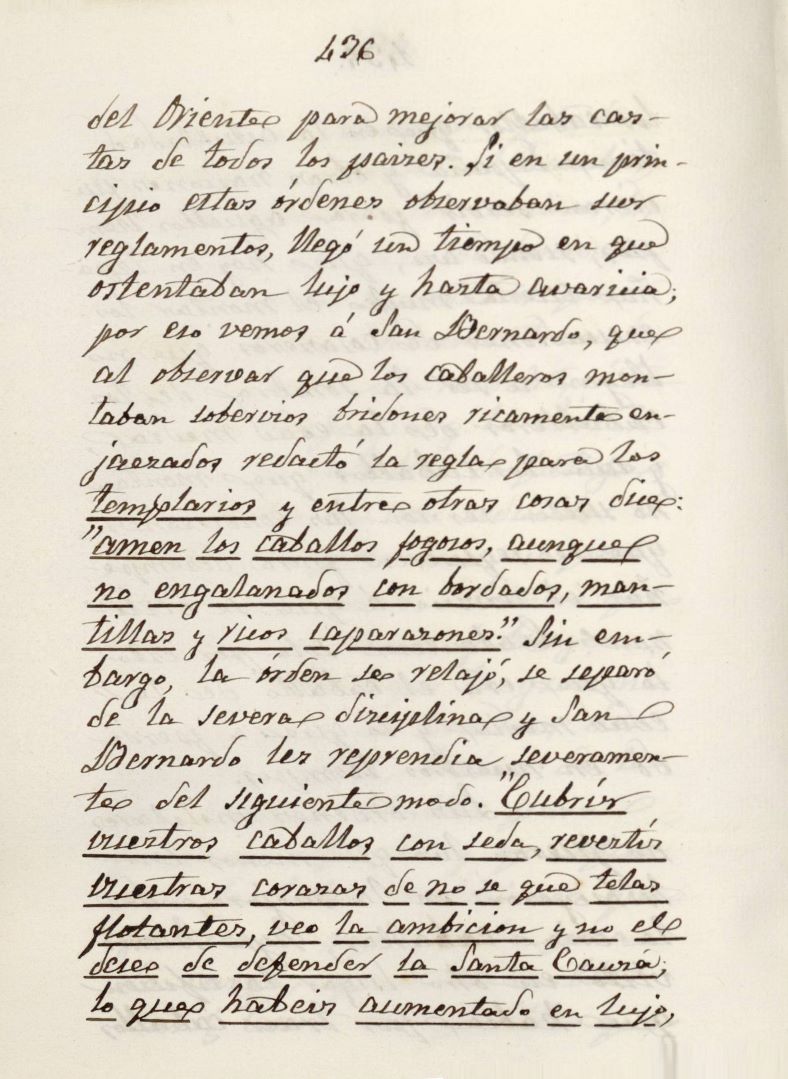 436
del Oriente para mejorar las cas-
tas de todos los paises. Si en un prin-
cipio estas órdenes observaban sus
reglamentos, llegó un tiempo en que
ostentaban lujo y hasta avaricia;
por eso vemos á San Bernardo, que
al observar que los caballeros mon-
taban sobervios bridones ricamente en-
jaezados redactó la regla para los
templarios y entre otras cosas dice:
"amen los caballos fogosos, aunque
no engalanados con bordados, man-
tillas y ricos caparazones." Sin em-
bargo, la órden se relajó, se separó
de la severa disciplina y San
Bernardo les reprendia severamen-
te del siguiente modo. "Cubrir
vuestros caballos con seda, revestis
vuestras corazas de no se que telas
flotantes, veo la ambicion y no el
deseo de defender la Santa Causa;
lo que habeis aumentado en lujo,